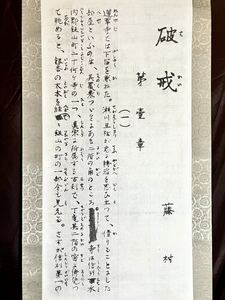 破戒
はかい
第壹章
藤村
(一)
蓮華寺では下宿を兼ねた。瀬川丑松が急に轉宿を思ひ立つて、借りることにした
部屋といふのは、其蔵裏つゞきにある二階の角のところ。寺は信州下水
内郡飯山町二十何ヶ寺の一つ、眞宗に附属する古刹で、丁度其二階の窓に倚凭つ
て眺めると、銀杏の大木を経てゝ飯山の町の一部分も見える。さすが信州第一の